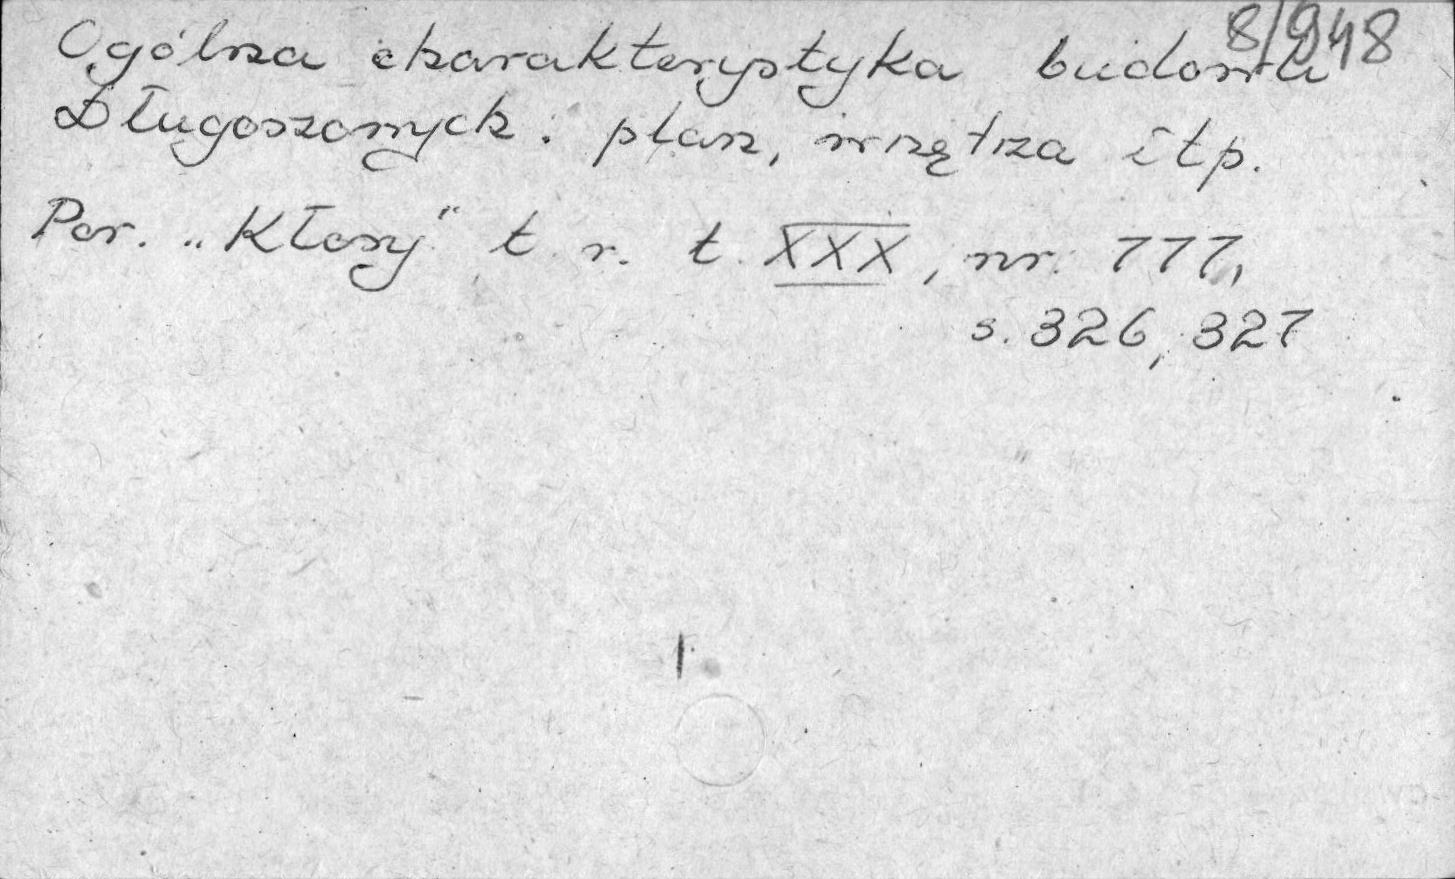 8/948
Ogólna charakterystyka budowli
Długoszowych: plan, wnętrza itp.
Por. „Kłosy" t. r. t. XXX, nr. 777,
s. 326, 327